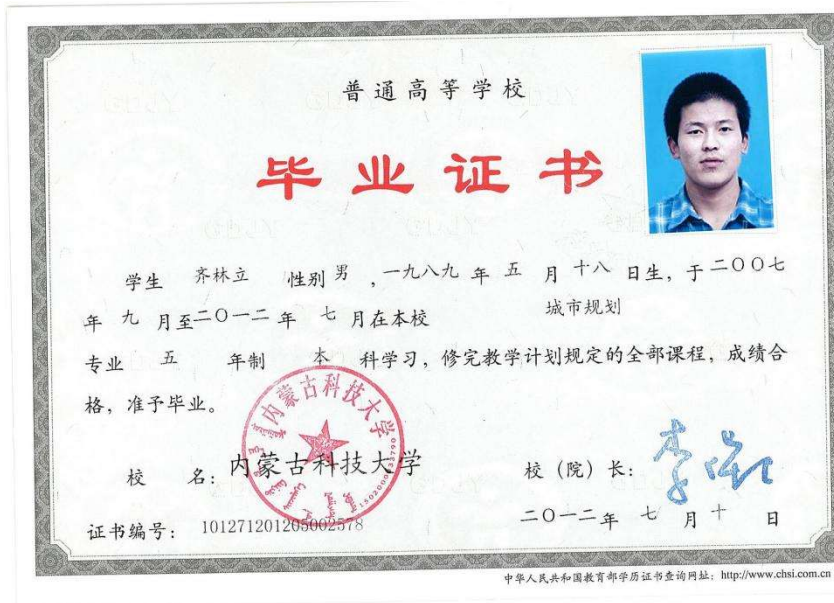 普通高等学校
毕业证书
学生 齐林立 性别 男 ,一九八九 年 五 月 十八 日生, 于二〇〇七
年 九 月至二〇一二 年 七 月在本校 城市规划
专业 五 年制 本 科学习, 修完教学计划规定的全部课程, 成绩合
格, 准予毕业。
内蒙古科技大学
校 名: 内蒙古科技大学
校 (院) 长:
证书编号: 101271201205002578
二〇一二年 七 月 十 日
中华人民共和国教育部学历证书查询网址: http://www.chsi.com.cn